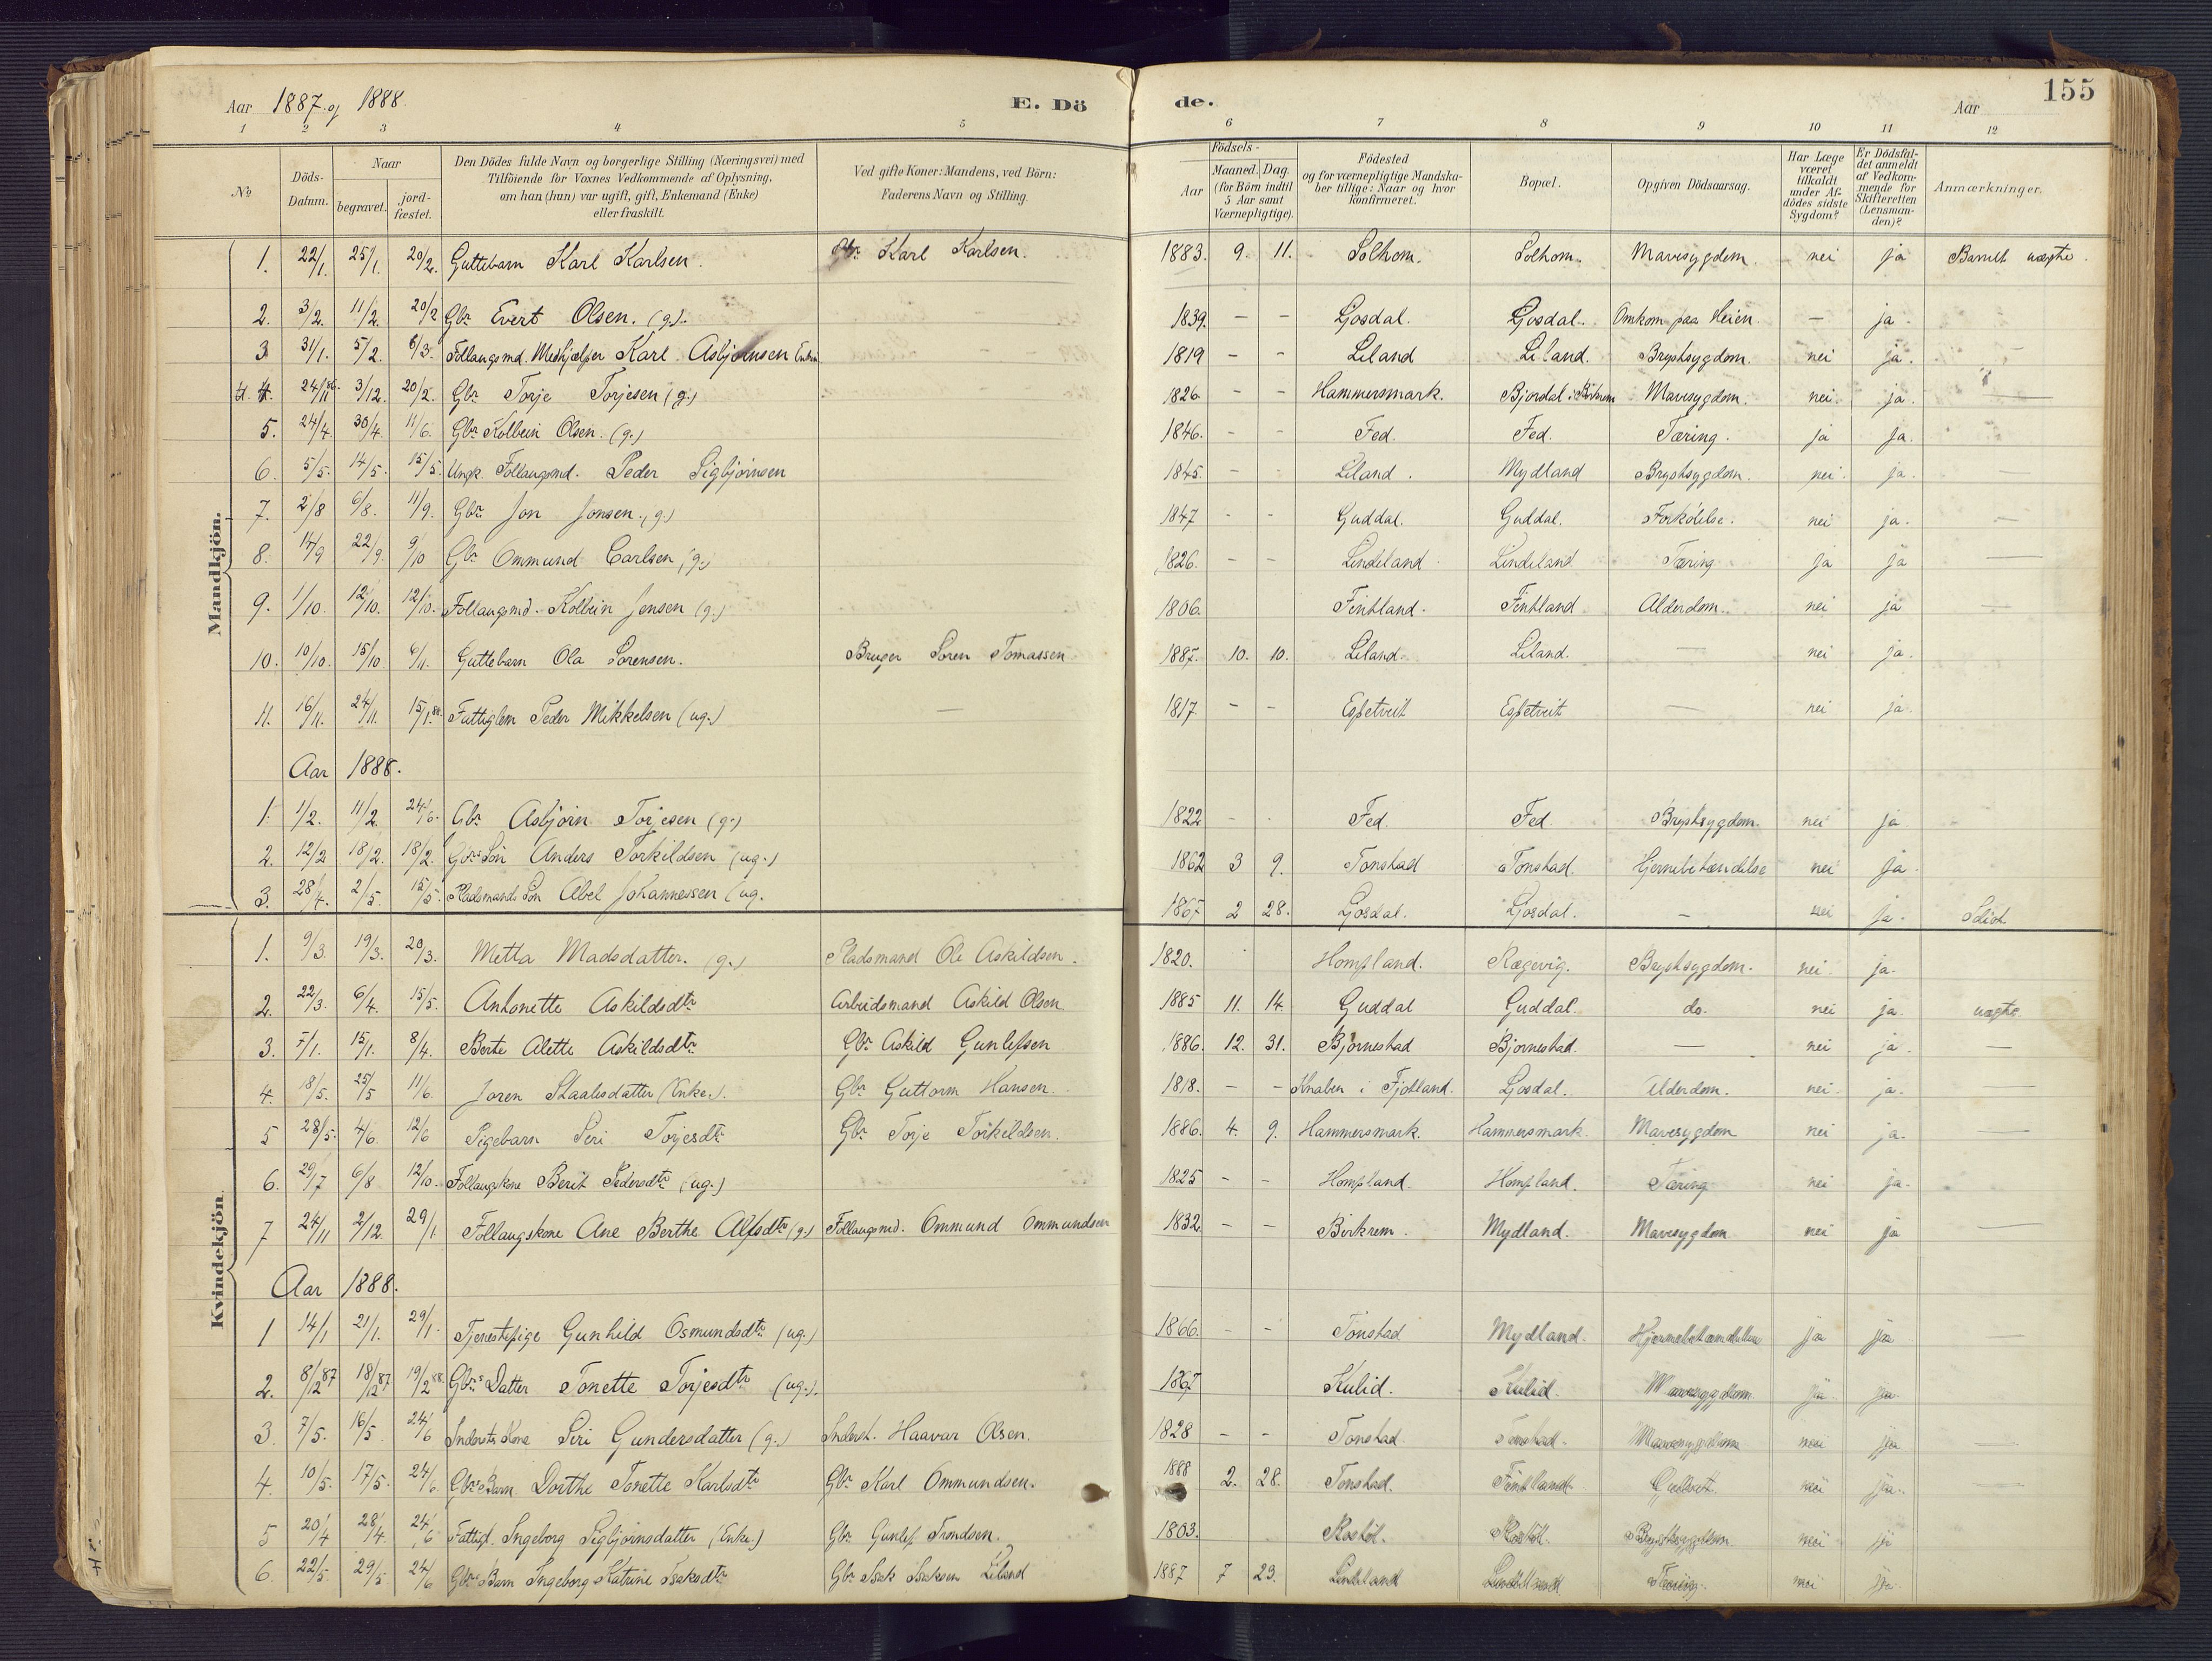 155
Aar 1887 og 1888. E. Dö de. Aar
1 2 3 4 5 6 7 8 9 10 11 12
No Döds-Datum. Naar begravet. jordfæstet. Den Dödes fulde Navn og borgerlige Stilling (Næringsvei) med Tilföiende for Voxnes Vedkommende af Oplysning, om han (hun) var ugift, gift, Enkemand (Enke) eller fraskilt. Ved gifte Koner: Mandens, ved Börn: Faderens Navn og Stilling. Födsels- Aar Maaned. Dag. (for Börn indtil 5 Aar samt Værnepligtige). Födested og for værnepligtige Mandskaber tillige: Naar og hvor konfirmeret. Bopæl. Opgiven Dödsaarsag. Har Læge været tilkaldt under Afdödes sidste Sygdom? Er Dödsfaldet anmeldt af Vedkommende for Skifteretten (Lensmanden)? Anmærkninger.
Mandkjön.
1. 22/1. 25/1. 20/2. Guttebarn Karl Karlsen. Gbr. Karl Karlsen. 1883. 9. 11. Solhom. Solhom. Mavesygdom. nei ja Barnet uægte.
2. 3/2. 11/2. 20/2 Gbr Evert Olsen. (g.). 1839. - - Josdal. Josdal. Omkom paa Heien. - ja.
3 31/1. 5/2. 6/3. Follaugsmd. Medhjælper Karl Asbjørnsen Enkm. 1819 - - Liland Liland. Brystsygdom. nei ja.
4. 24/11 86. 3/12. 20/2. Gbr Torje Torjesen (g.) 1826 - - Hammersmark. Bjordal i Mavesygdom. nei. ja.
5. 24/4. 30/4. 11/6. Gbr Kolbein Olsen. (g.) 1846. - - Fed. Fed. Tæring. ja ja.
6. 5/5. 14/5. 15/5. Ungk. Follaugsmd. Peder Sigbjørnsen 1845. - Liland. Mydland Brystsygdom. nei. ja.
7. 2/8 6/8. 11/9. Gbr Jon Jonsen. (g.) 1847 - - Guddal. Guddal. Forkölelse. nei ja.
8. 14/9 22/9. 9/10 Gbr Ommund Carlsen (g.) 1826. - - Lindeland Lindeland Tæring ja ja
9. 1/10. 12/10. 12/10. Follaugsmd. Kolbein Jensen (g.) 1806. Fintland. Fintland Alderdom. nei ja
10. 10/10. 15/10 6/11. Guttebarn Ola Sørensen. Bruger Søren Tomassen 1887. 10. 10. Liland. Liland. - nei ja.
11. 16/11. 24/11. 15/1 88. Fattiglem Peder Mikkelsen (ug.) - 1817 - - Espetveit Espetveit - nei ja.
Aar 1888.
1. 1/2. 11/2. 24/6. Gbr Asbjørn Torjesen (g.) 1822 - Fed. Fed. Brystsygdom. nei ja
2. 12/2 18/2. 18/2. Gbrs Søn Anders Torkildsen (ug.) 1862 3 9. Tonstad Tonstad. Hjernebetændelse nei ja
3. 28/4. 2/5. 15/5. Pladsmands Søn Abel Johannessen (ug. 1867 2 28. Josdal. Josdal. - nei ja.
Kvindekjön.
1. 9/3. 19/3. 20/3. Metta Madsdatter. (g.) Pladsmand Ole Askildsen. 1820. Hompland. Rægevig. Brystsygdom. nei. ja.
2. 22/3. 6/4. 15/5. Antonette Askildsdtr Arbeidsmand Askild Olsen 1885 11. 14. Guddal Guddal. do. nei ja. uægte.
3. 7/1. 15/1. 8/4. Berte Alette Askildsdtr. Gbr Askild Gunlefsen 1886. 12. 31. Bjørnestad Bjørnestad. - nei ja. -
4. 18/5. 25/5 11/6. Joren Staalesdatter (Enke). Gbr Guttorm Hansen. 1818. - - Knaben i Fjotland. Josdal. Alderdom. nei. ja. -
5 28/5. 4/6. 12/6 Pigebarn Seri Torjesdtr Gbr Torje Torkildsen. 1886. 4. 9. Hammersmark. Hammersmark. Mavesygdom nei ja. -
6. 29/7 6/8 12/10. Follaugskone Berit Pedersdtr (ug.) 1825 - - Hompland. Hompland. Tæring nei ja.
7 24/11 2/12. 29/1 Follaugskone Ane Berthe Alfsdtr (g.) Follaugsmd. Ommund Ommundsen 1832. - - Birkrem. Mydland. Mavesygdom nei ja -
Aar 1888.
1 14/1 21/1. 29/1. Tjenestepige Gunhild Osmundsdtr (ug.) 1866. - - Tonstad Mydland. Hjernebetændelse ja ja -
2. 8/12 87 18/12 87 19/2 88. Gbrs Datter Tonette Torjesdtr (ug.). 1867 Kulid. Kulid. Mavesygdom ja ja
3 7/5. 16/5 24/6 Inderstes Kone Siri Gundersdatter (g.) Inderst. Haavar Olsen. 1828 - - Tonstad. Tonstad. Mavesygdom nei ja
4. 10/5. 17/5. 24/6. Gbrs Barn Dorthe Tonette Karlsdtr Gbr Karl Ommundsen. 1888 2. 28. Tonstad. Fintland. nei ja
5 20/4 28/4. 24/6 Fattigl. Ingeborg Sigbjørnsdatter (Enke.) Gbr Gunlef Trondsen. 1803. Rostöl. Rostöl. Brystsygdom nei ja
6. 22/5. 29/5 24/6 Gbrs Barn Ingeborg Katrine Isaksdtr Gbr Isak Isaksen Liland 1887 7 23. Lindeland Lindeland Tæring. nei ja